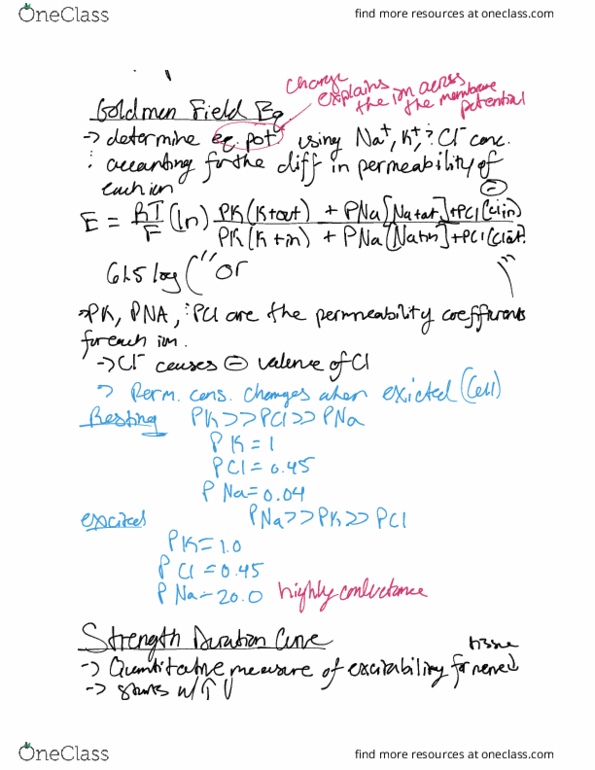 OneClass
find more resources at oneclass.com
Goldmen Field Eq
charge explains
the ion across
the membrane
potential
-> determine eq. pot using Na+, K+, : Cl- conc.
: accounting for the diff in permeability of
each ion
E = RT/F (ln) PK(K+out) + PNa[Na+out]+PCl(Cl in)
PK(K+in) + PNa(Na+in)+PCl(Cl out)
61.5 log ("or ")
->PK, PNA, : PCl are the permeability coefficients
for each ion.
-> Cl- causes ⊖ valence of Cl
-> Perm. cons. changes when exicted (Cell)
Resting PK>>PCl>>PNa
PK=1
PCl=0.45
PNa=0.04
excited PNa>>PK>>PCl
PK=1.0
PCl=0.45
PNa=20.0 highly conductance
Strength Duration Curve
-> Quantitative measure of excitability for nerve
tissue
->
OneClass
find more resources at oneclass.com